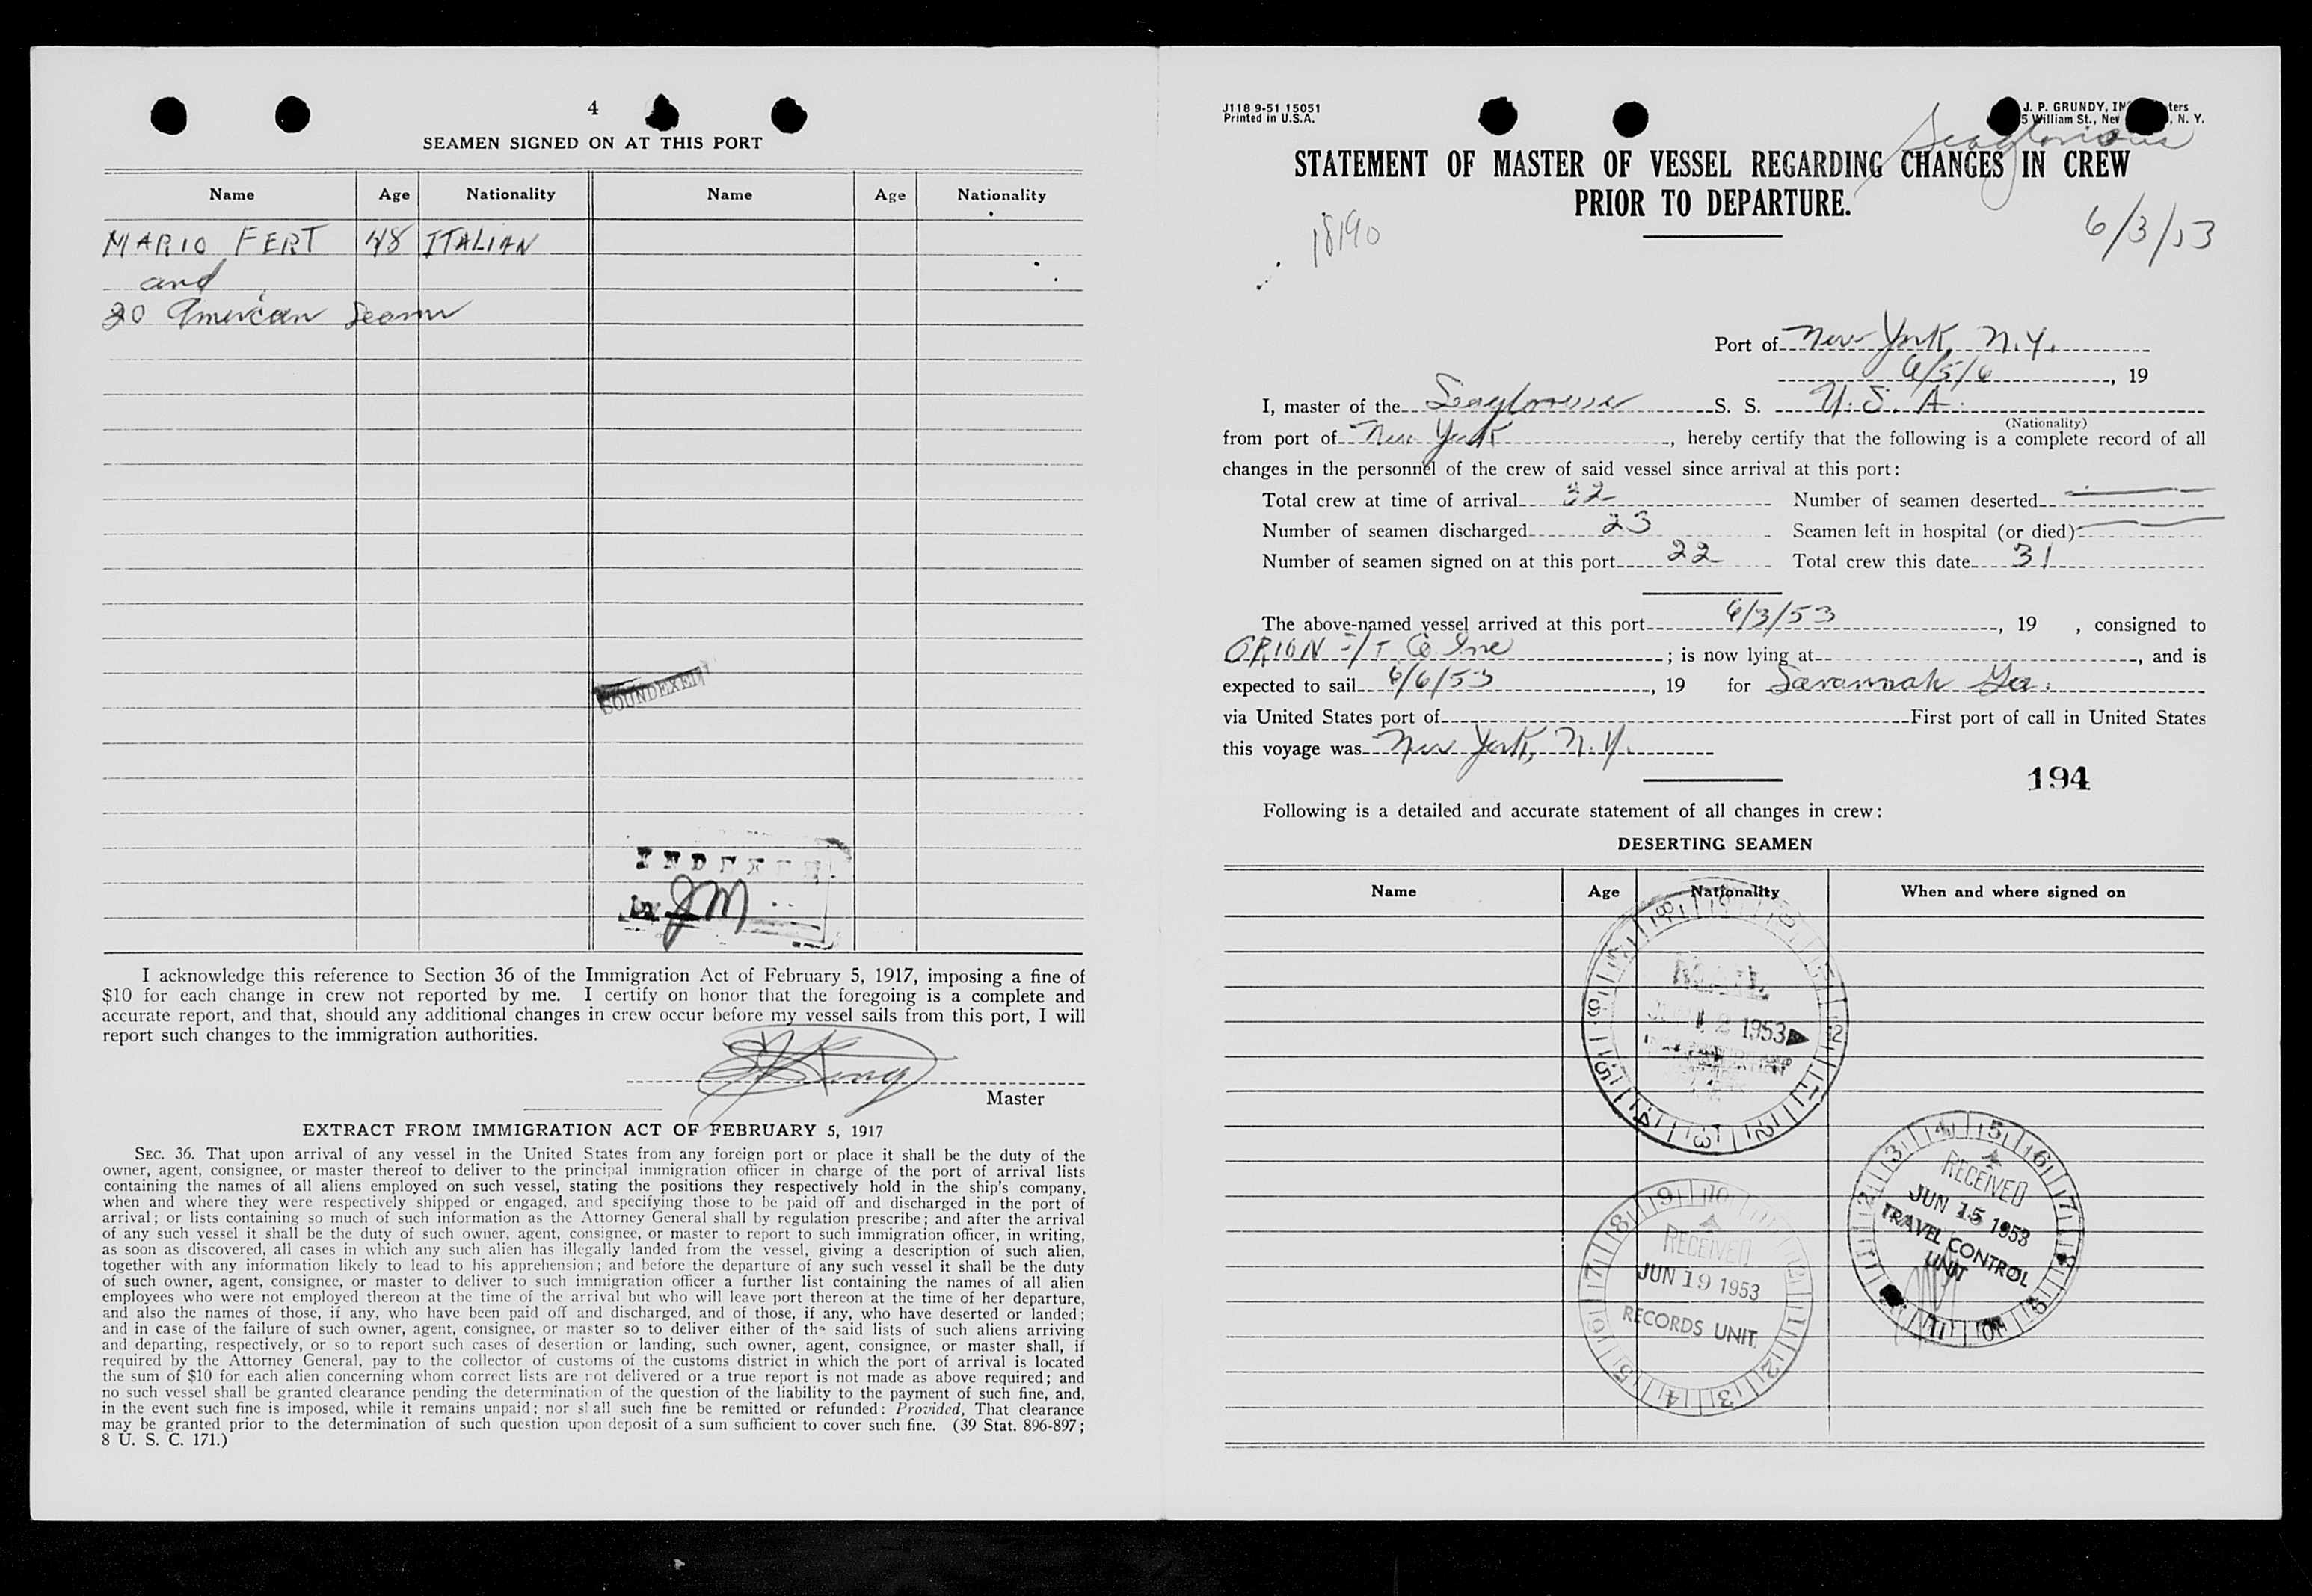 4
SEAMEN SIGNED ON AT THIS PORT
Name Age Nationality Name Age Nationality
MARIO FERT 48 ITALIAN
and
20 American
SOUNDEXED
INDEXED
BY JM
I acknowledge this reference to Section 36 of the Immigration Act of February 5, 1917, imposing a fine of
$10 for each change in crew not reported by me. I certify on honor that the foregoing is a complete and
accurate report, and that, should any additional changes in crew occur before my vessel sails from this port, I will
report such changes to the immigration authorities.
King
Master
EXTRACT FROM IMMIGRATION ACT OF FEBRUARY 5, 1917
SEC. 36. That upon arrival of any vessel in the United States from any foreign port or place it shall be the duty of the
owner, agent, consignee, or master thereof to deliver to the principal immigration officer in charge of the port of arrival lists
containing the names of all aliens employed on such vessel, stating the positions they respectively hold in the ship's company,
when and where they were respectively shipped or engaged, and specifying those to be paid off and discharged in the port of
arrival; or lists containing so much of such information as the Attorney General shall by regulation prescribe; and after the arrival
of any such vessel it shall be the duty of such owner, agent, consignee, or master to report to such immigration officer, in writing,
as soon as discovered, all cases in which any such alien has illegally landed from the vessel, giving a description of such alien,
together with any information likely to lead to his apprehension; and before the departure of any such vessel it shall be the duty
of such owner, agent, consignee, or master to deliver to such immigration officer a further list containing the names of all alien
employees who were not employed thereon at the time of the arrival but who will leave port thereon at the time of her departure,
and also the names of those, if any, who have been paid off and discharged, and of those, if any, who have deserted or landed;
and in case of the failure of such owner, agent, consignee, or master so to deliver either of the said lists of such aliens arriving
and departing, respectively, or so to report such cases of desertion or landing, such owner, agent, consignee, or master shall, if
required by the Attorney General, pay to the collector of customs of the customs district in which the port of arrival is located
the sum of $10 for each alien concerning whom correct lists are not delivered or a true report is not made as above required; and
no such vessel shall be granted clearance pending the determination of the question of the liability to the payment of such fine, and,
in the event such fine is imposed, while it remains unpaid; nor shall such fine be remitted or refunded: Provided, That clearance
may be granted prior to the determination of such question upon deposit of a sum sufficient to cover such fine. (39 Stat. 896-897;
8 U. S. C. 171.)
J118 9-51 15051
Printed in U.S.A.
J. P. GRUNDY, ters
William St., N. Y.
Seaglorious
STATEMENT OF MASTER OF VESSEL REGARDING CHANGES IN CREW
PRIOR TO DEPARTURE.
18190
6/3/53
Port of New York, N.Y.
6/5/6, 19
I, master of the Seaglorious S. S. U. S. A.
(Nationality)
from port of New York, hereby certify that the following is a complete record of all
changes in the personnel of the crew of said vessel since arrival at this port:
Total crew at time of arrival 32 Number of seamen deserted —
Number of seamen discharged 23 Seamen left in hospital (or died) —
Number of seamen signed on at this port 22 Total crew this date 31
The above-named vessel arrived at this port 6/3/53, 19 , consigned to
ORION S/T Co Inc; is now lying at , and is
expected to sail 6/6/53, 19 for Savannah Ga.
via United States port of First port of call in United States
this voyage was New York, N.Y.
194
Following is a detailed and accurate statement of all changes in crew:
DESERTING SEAMEN
Name Age Nationality When and where signed on
MAIL
1953
RECEIVED
JUN 15 1953
TRAVEL CONTROL
UNIT
RECEIVED
JUN 19 1953
RECORDS UNIT